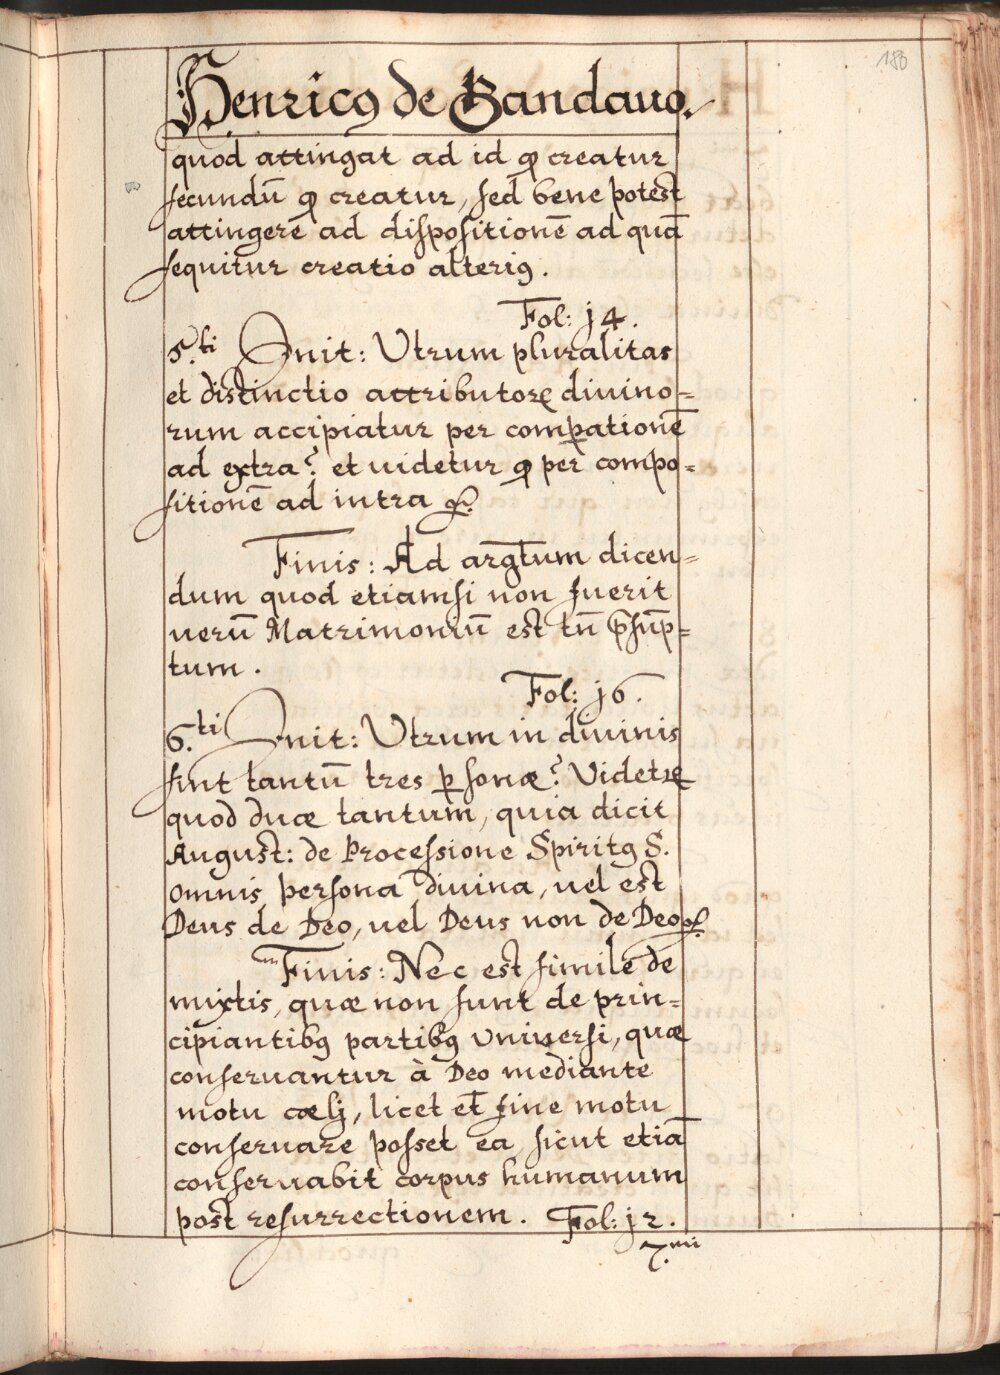 188
Henricꝯ de Gandauo.
quod attingat ad id ꝙ creatur
secundū ꝙ creatur, sed bene potest
attingerē ad dispositionē ad quā
sequitur creatio alteriꝯ.
Fol: 14.
5.ti Init: Utrum pluralitas
et distinctio attributorꝝ diuino-
rum accipiatur per comꝑationē
ad extra? et uidetur ꝙ per compo-
sitionē ad intra &c.
Finis: Ad arg̅tum dicen-
dum quod etiamsi non fuerit
uerū Matrimoniū est tn̄ p̄sūp-
tum.
Fol: 16.
6.ti Init: Utrum in diuinis
sint tantū tres ꝑsonæ? Videtꝝ
quod duæ tantum, quia dicit
August: de Processione Spiritꝯ S.
omnis persona diuina, uel est
Deus de Deo, uel Deus non de Deo &c.
Finis: Nec est simile de
mixtis, quæ non sunt de prin-
cipiantibꝯ partibꝯ Universi, quæ
conseruantur à Deo mediante
motu cælj, licet et sine motu
conseruare posset ea, sicut etiā
conseruabit corpus humanum
post resurrectionem. Fol: 12.
7.mi